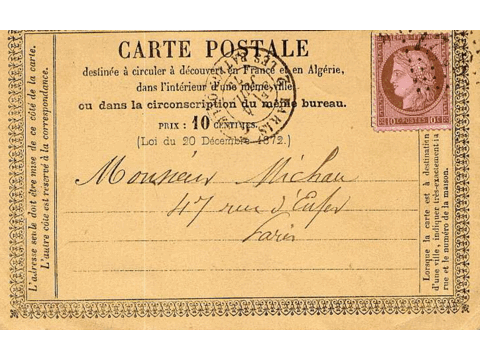 CARTE POSTALE
destinée à circuler à découvert en France et en Algérie,
dans l'intérieur d'une même ville
ou dans la circonscription du même bureau.
PRIX : 10 CENTIMES.
(Loi du 20 Décembre 1872.)
Monsieur Michau
47 rue d'Enfer
Paris
L'adresse seule doit être mise de ce côté de la carte.
L'autre côté est réservé à la correspondance.
Lorsque la carte est à destination
d'une ville, indiquer très-exactement la
rue et le numéro de la maison.
10 POSTES 10
PARIS